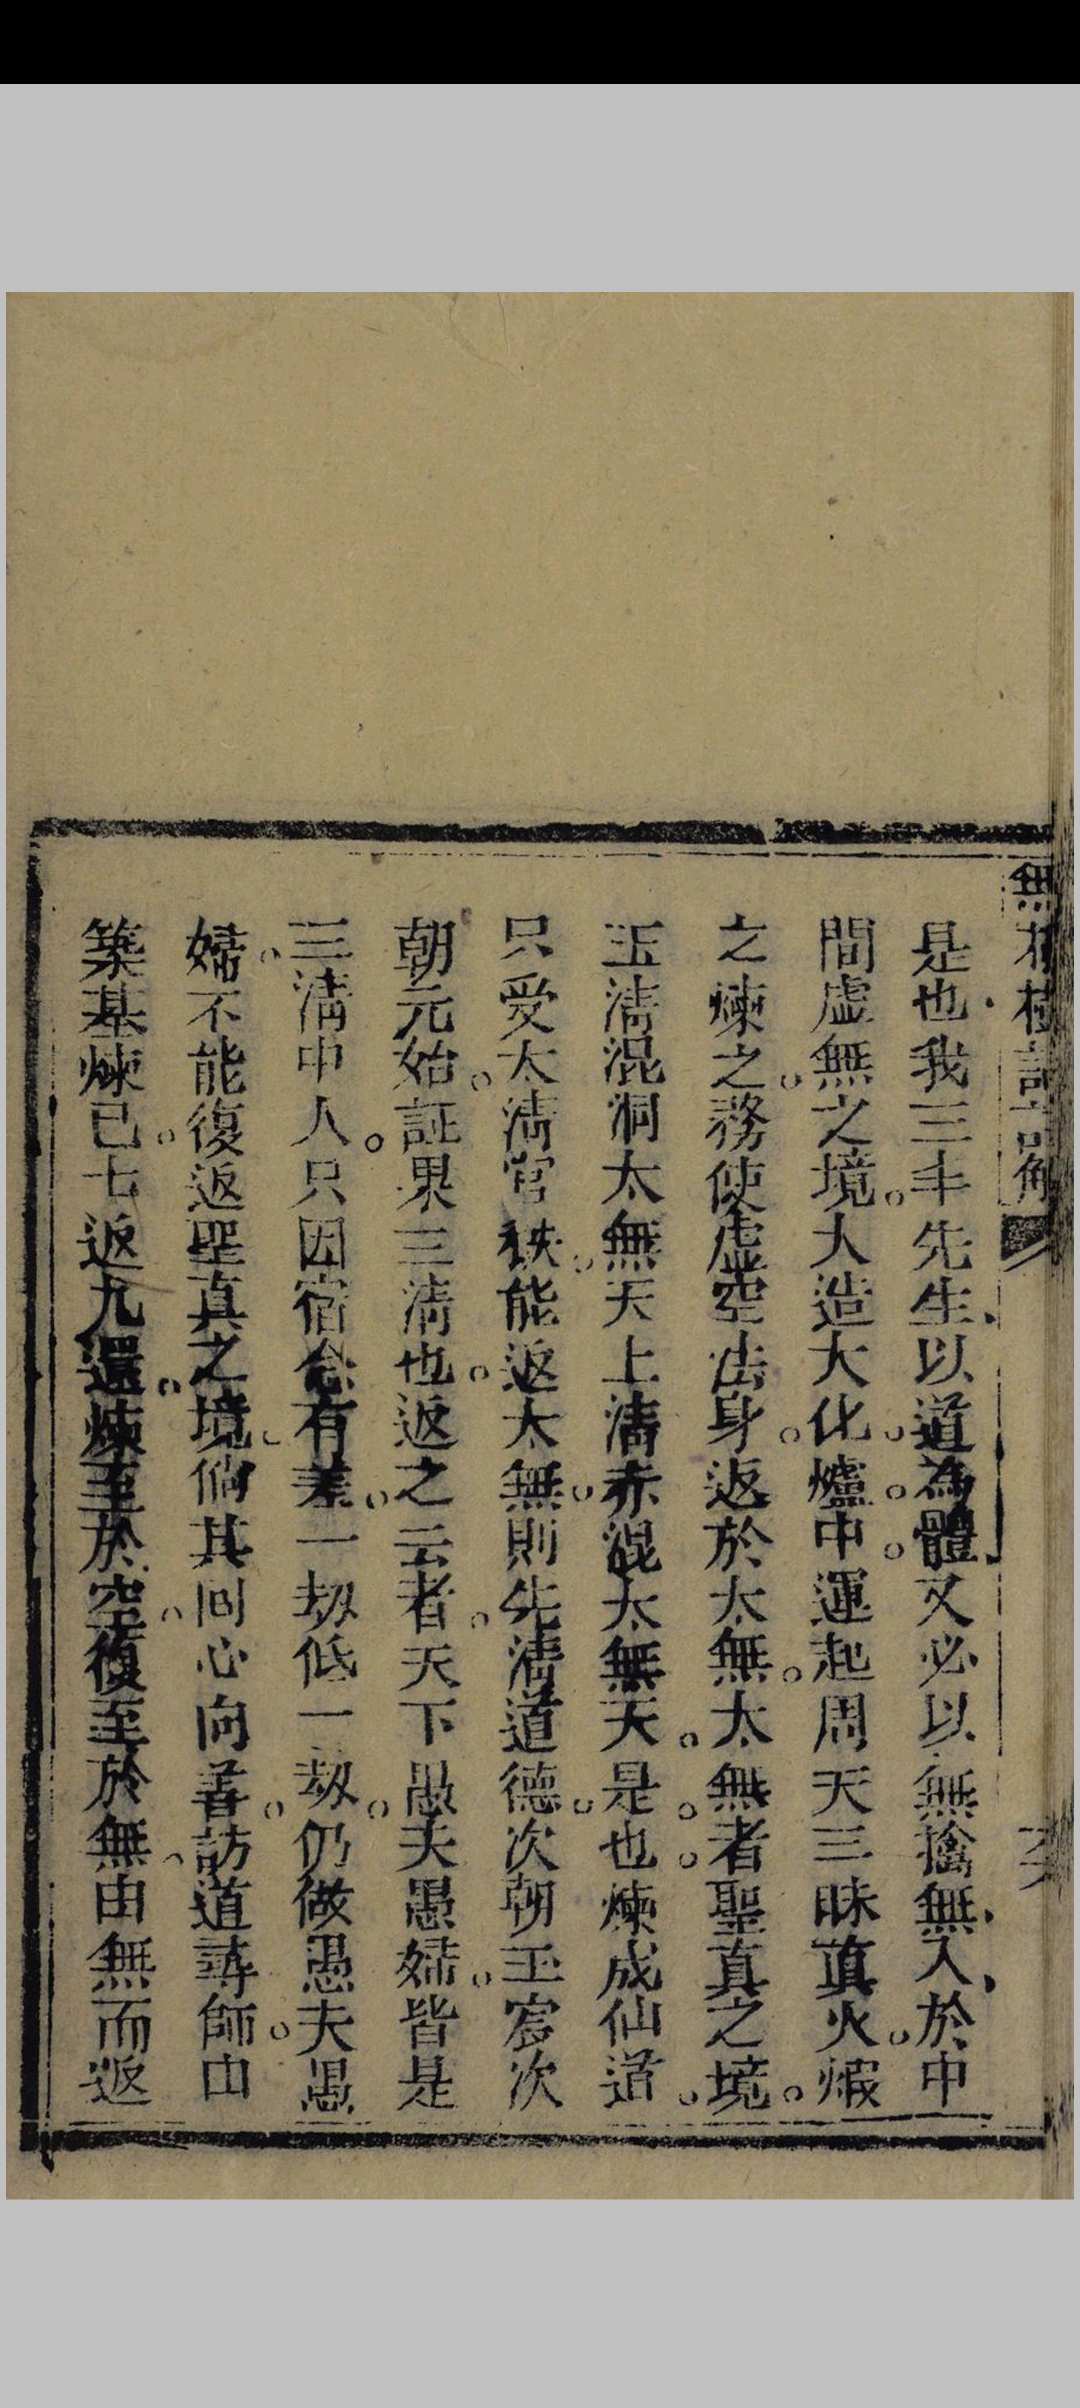 無根樹詞註解
是也我三丰先生以道為體又必以無擒無入於中
間虛無之境大造大化爐中運起周天三昧真火煅
之煉之務使虛空法身返於太無太無者聖真之境
玉清混洞太無天上清赤混太無天是也煉成仙道
只受太清官秩能返太無則先清道德次朝玉宸次
朝元始証果三清也返之云者天下愚夫愚婦皆是
三清中人只因宿念有差一刼低一刼仍做愚夫愚
婦不能復返聖真之境倘其回心向善訪道尋師由
築基煉已七返九還煉至於空復至於無由無而返